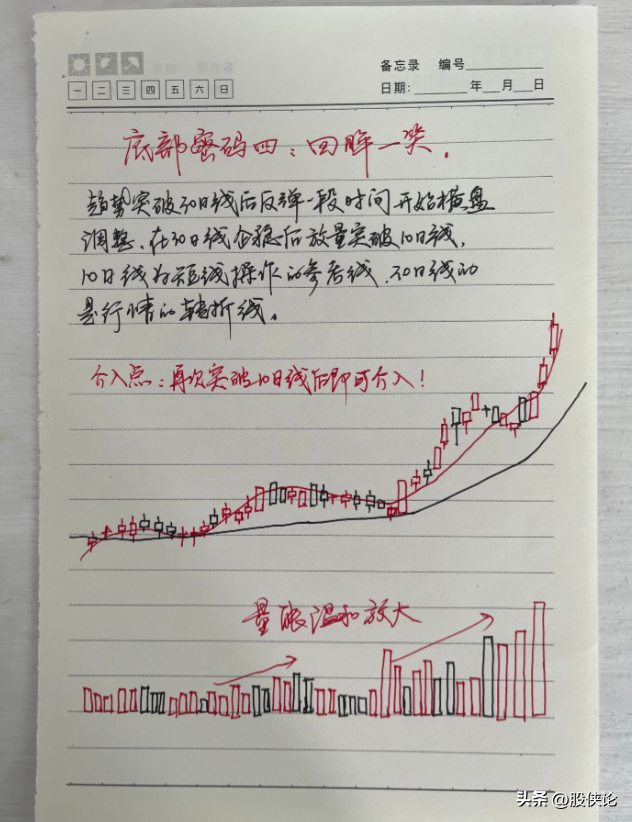 备忘录 编号
一 二 三 四 五 六 日
日期: 年 月 日
底部密码四：回眸一笑.
趋势突破30日线后反弹一段时间开始横盘
调整、在30日线企稳后放量突破10日线,
10日线为短线操作的参考线、30日线为
是行情的转折线。
介入点：再次突破10日线后即可介入！
量能温和放大
头条 @股侠论